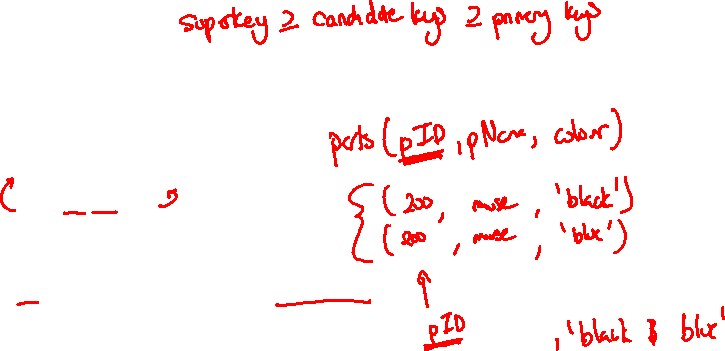 superkey ⊇ candidate keys ⊇ primary keys
parts(pID, pName, colour)
(200, mouse, 'black')
(200, mouse, 'blue')
pID , 'black & blue'